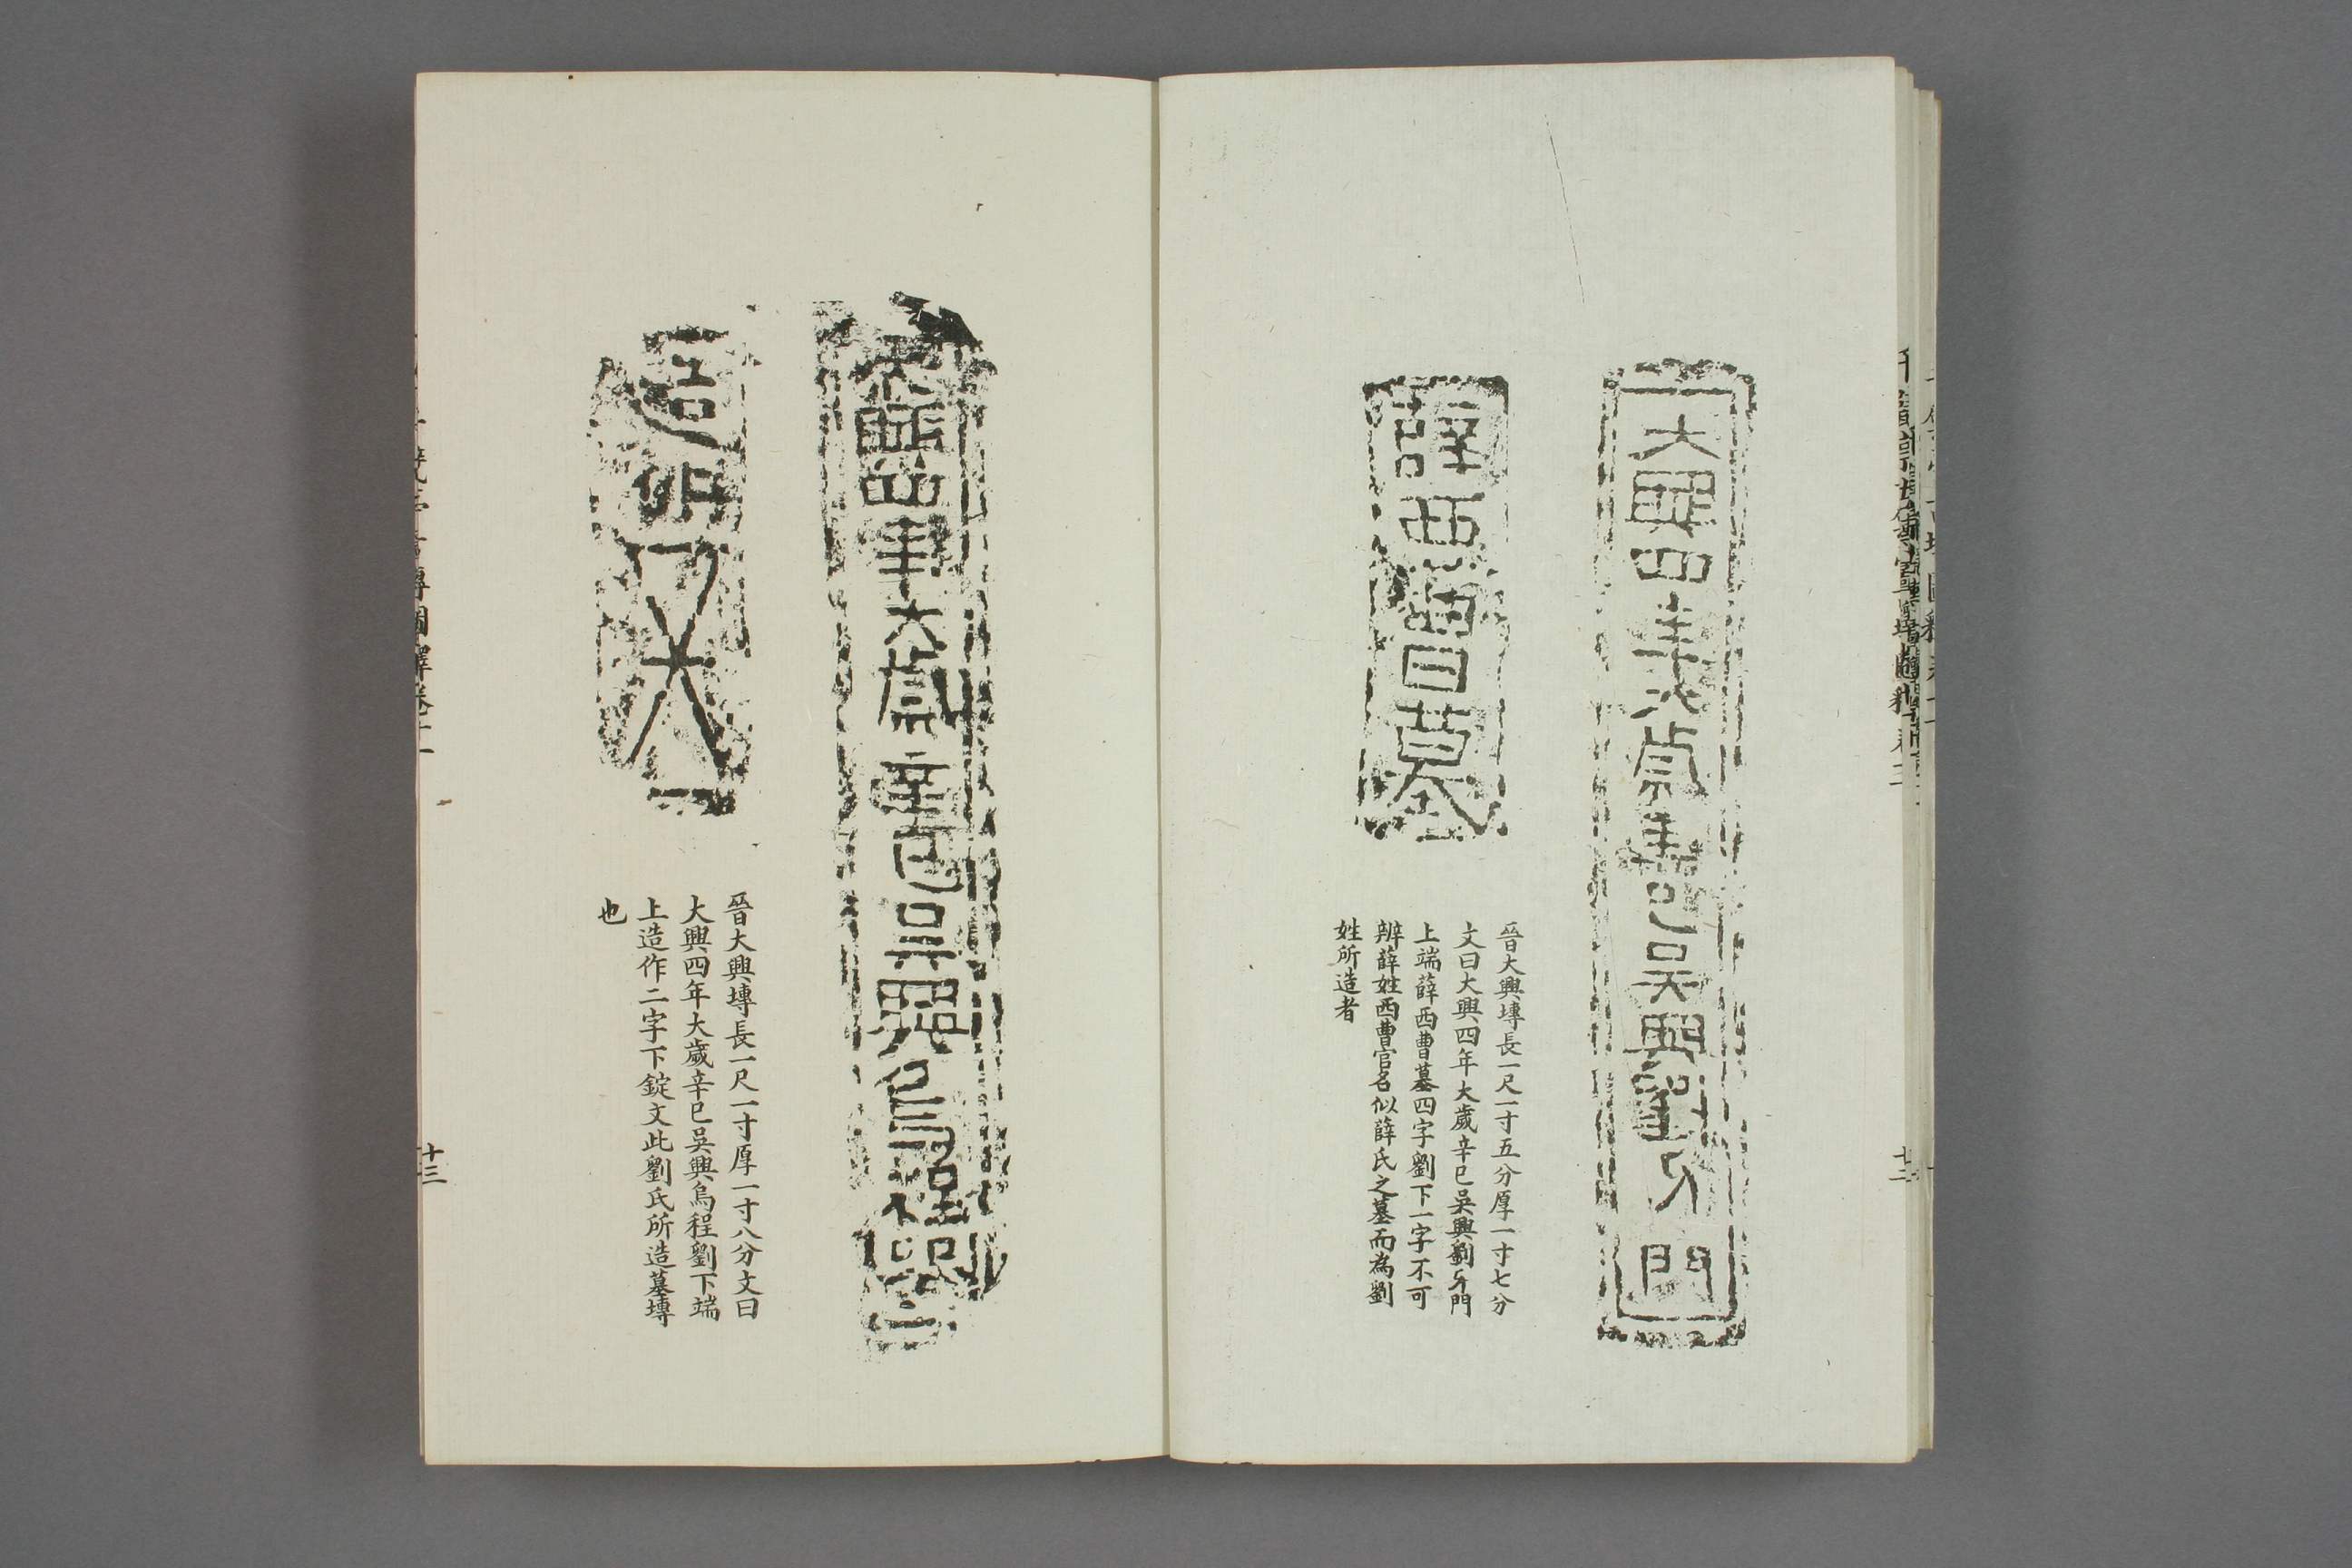 大興四年大歲辛巳吳興劉牙門
薛西曹墓
晉大興塼長一尺一寸五分厚一寸七分
文曰大興四年大歲辛巳吳興劉牙門
上端薛西曹墓四字劉下一字不可
辨薛姓西曹官名似薛氏之墓而為劉
姓所造者
大興四年大歲辛巳吳興烏程劉
造作
晉大興塼長一尺一寸厚一寸八分文曰
大興四年大歲辛巳吳興烏程劉下端
上造作二字下錠文此劉氏所造墓塼
也
十三